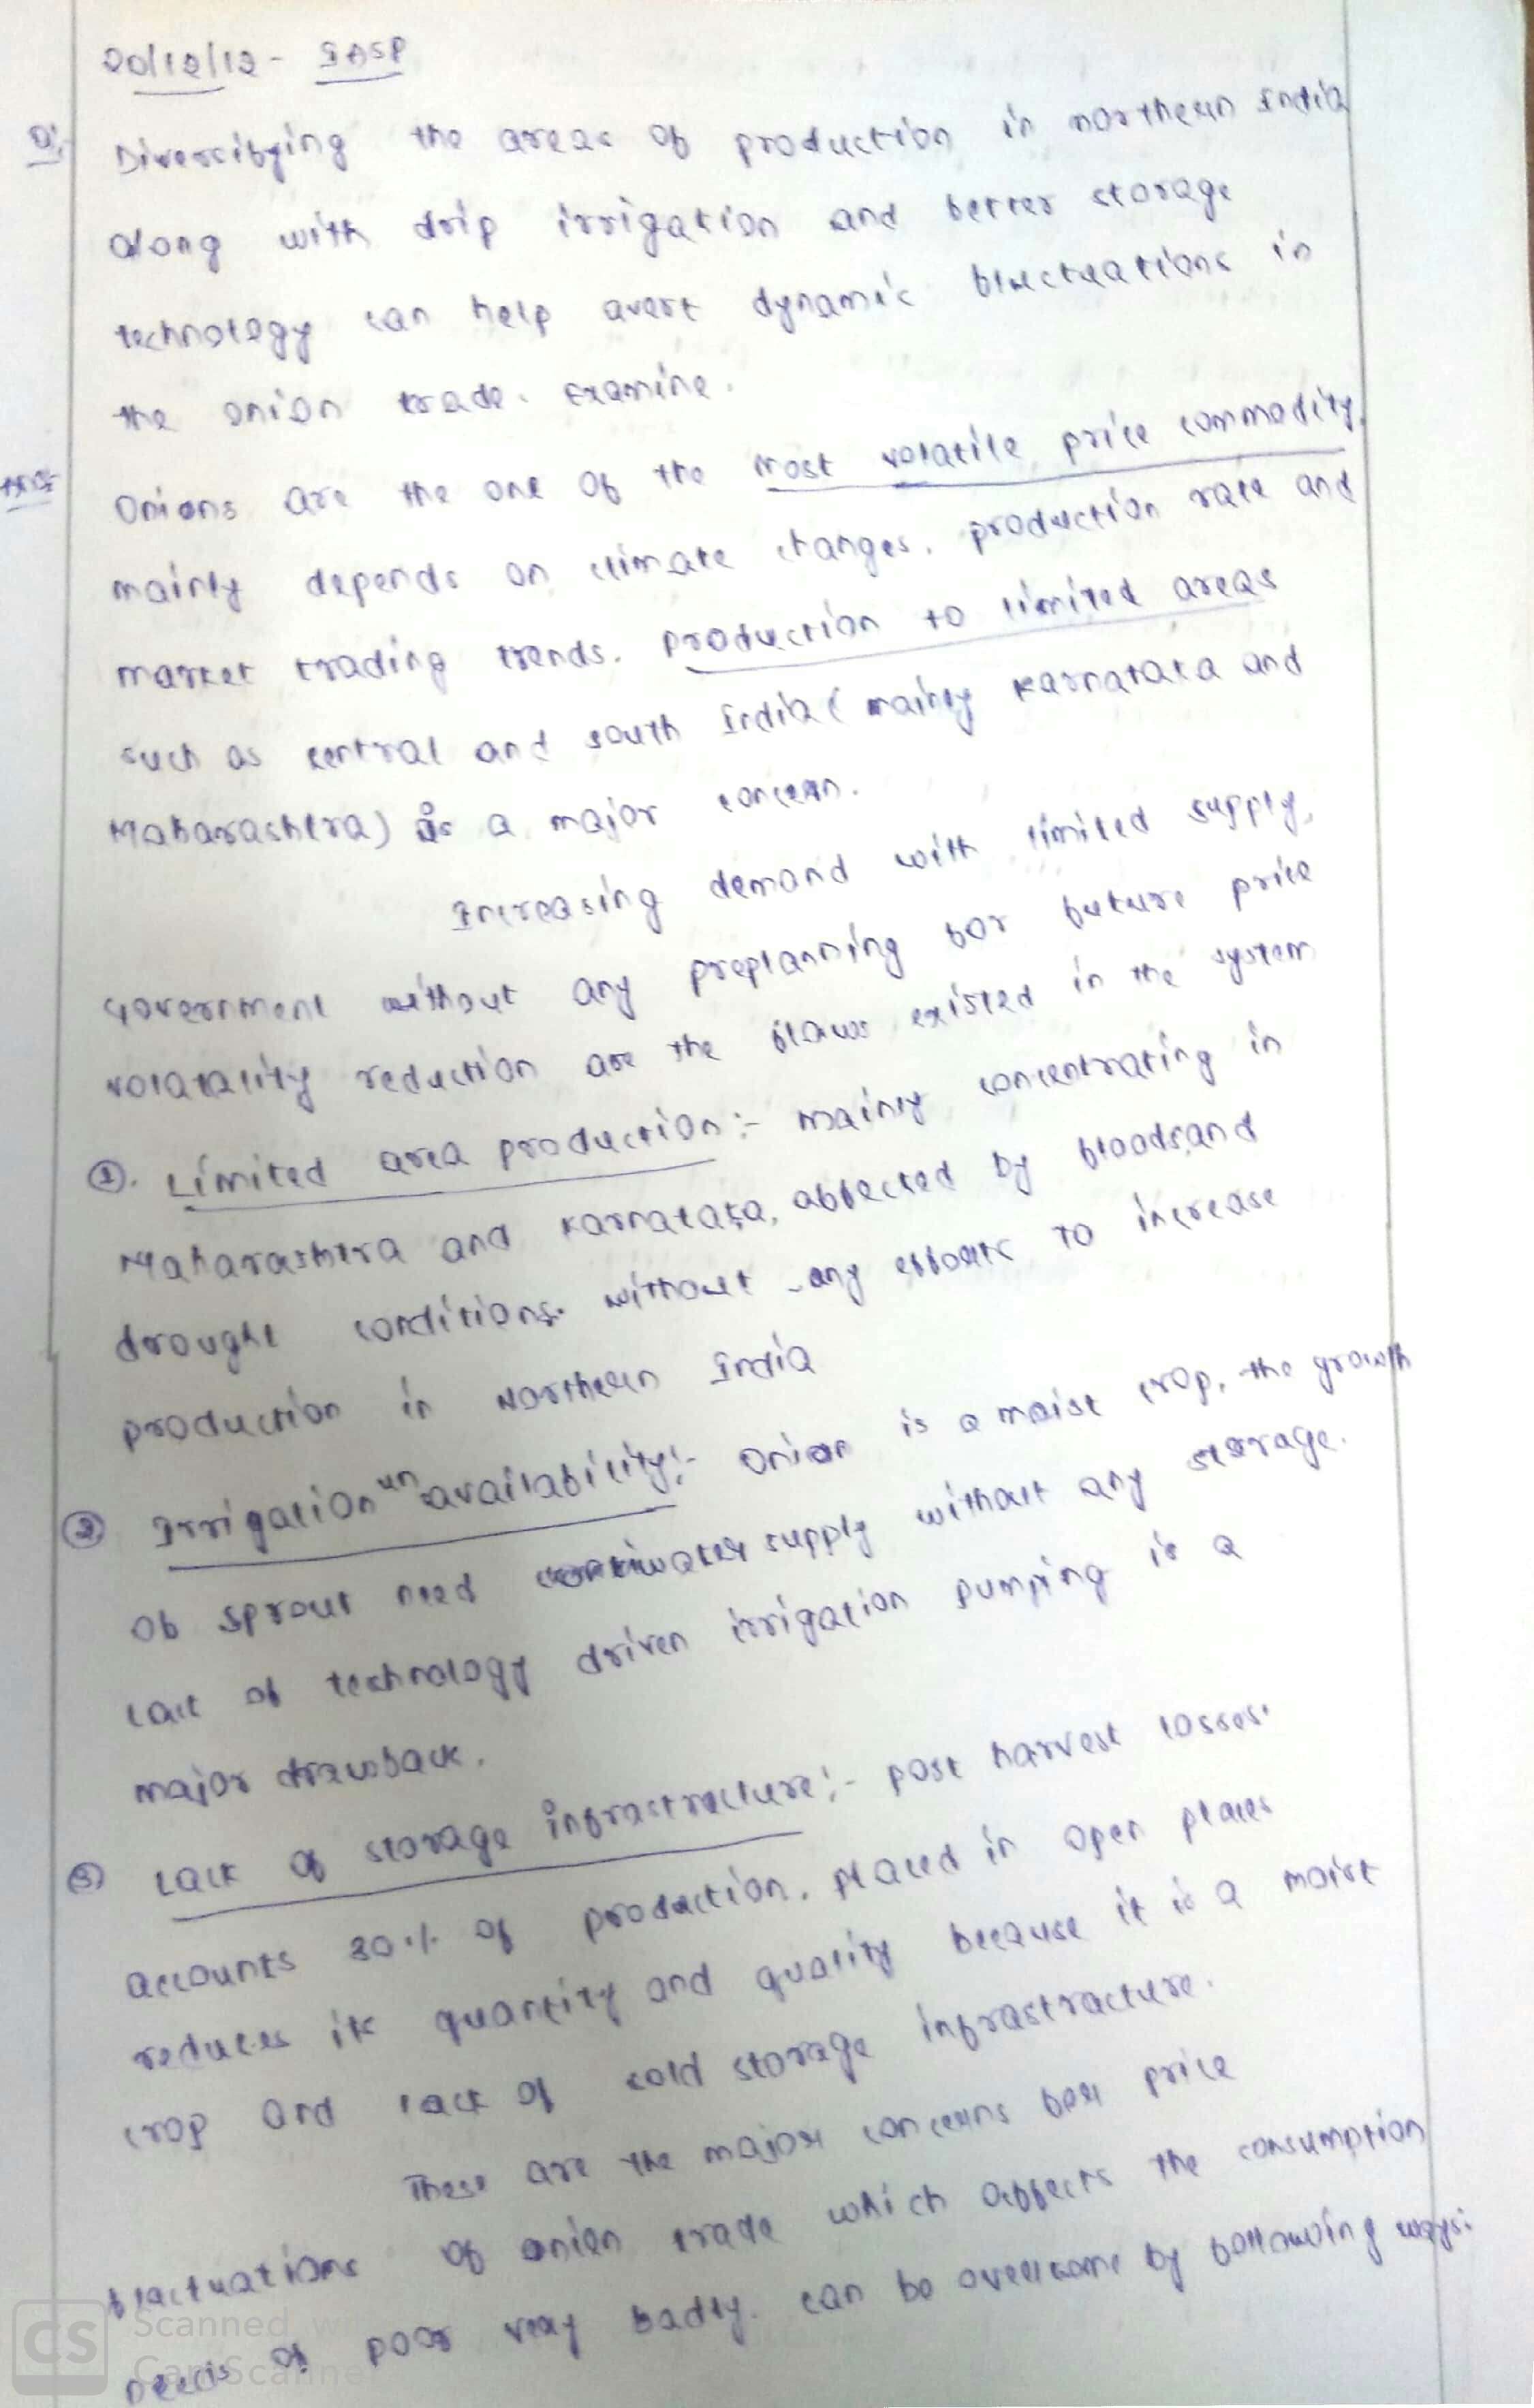 20/12/12 - IASP
Q:- Diversifying the areas of production in northern India
along with drip irrigation and better storage
technology can help avert dynamic fluctuations in
the onion trade. Examine.
Ans:- Onions are the one of the most volatile price commodity,
mainly depends on climate changes, production rate and
market trading trends. Production to limited areas
such as central and south India (mainly Karnataka and
Maharashtra) is a major concern.
Increasing demand with limited supply,
Government without any preplanning for future price
volatality reduction are the flaws existed in the system
①. Limited area production:- mainly concentrating in
Maharashtra and Karnataka, affected by floods and
drought conditions. without any efforts to increase
production in Northern India
② Irrigation unavailability:- Onion is a moist crop, the growth
of sprout need water supply without any storage.
Lack of technology driven irrigation pumping is a
major drawback.
③ Lack of storage infrastructure:- post harvest losses
accounts 30% of production. placed in open places
reduces its quantity and quality because it is a moist
crop and lack of cold storage infrastructure.
These are the major concerns for price
fluctuations of onion trade which affects the consumption
needs of poor very badly. can be overcome by following ways:
CS Scanned with
CamScanner